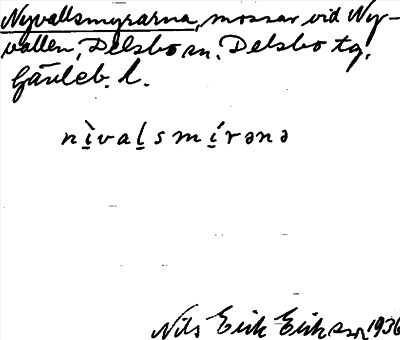 Nyvallsmyrarna, mossar vid Ny-
vallen, Delsbo sn. Delsbo tg.
Gävleb. l.
nì̱vaḻsmí̱rənə
Nils Erik Eriksson 1936